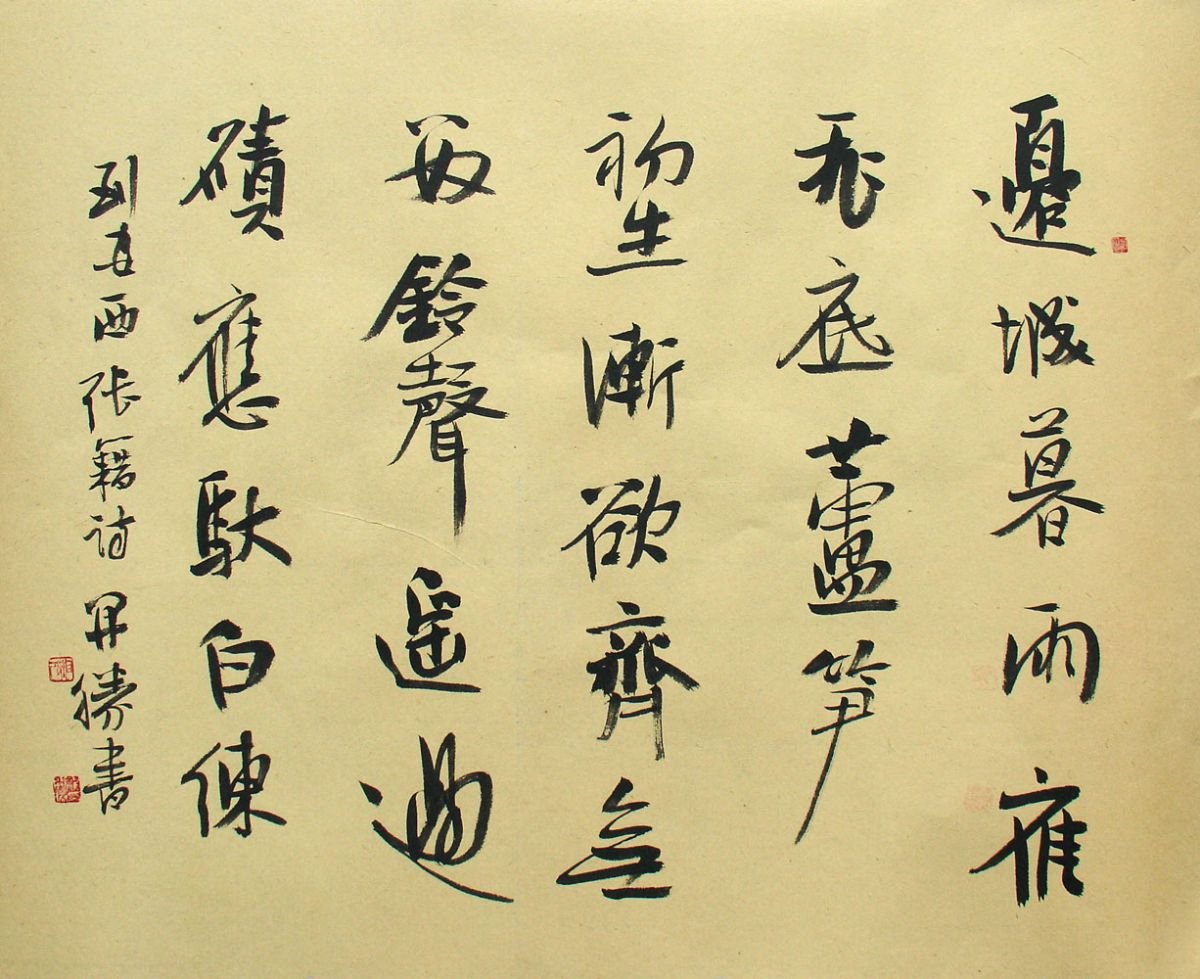 邊城暮雨雁
飛底蘆笋
初生漸欲齊無
數鈴聲遥過
磧應馱白練
到安西張籍詩 勝書